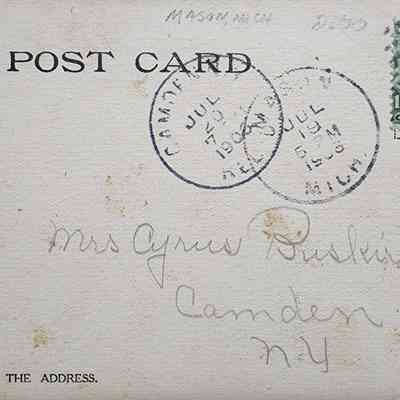 MASON, MICH
POST CARD
CAMDEN
JUL
20
190
REC'D
MASON
JUL
19
6 PM
1906
MICH.
Mrs Cyrus Buskir
Camden
N-Y
THE ADDRESS.